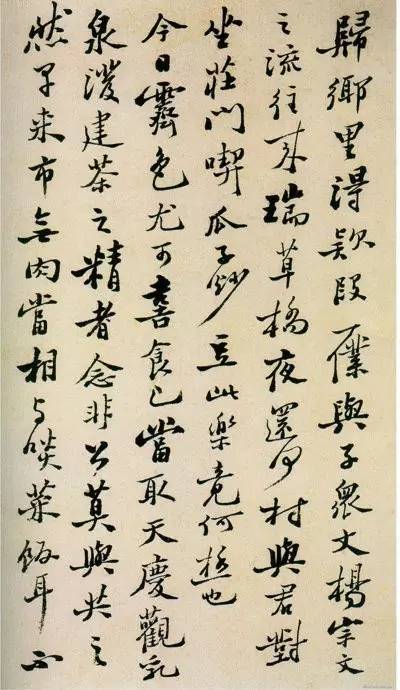 歸鄉里得欵段一僕與子眾丈楊宗文
之流往来瑞草橋夜還何村與君對
坐莊門喫瓜子炒豆此樂竟何極也
今日霽色尤可喜食已當取天慶觀乳
泉潑建茶之精者念非公莫與共之
然早来市無肉當相与啖菜飯耳不